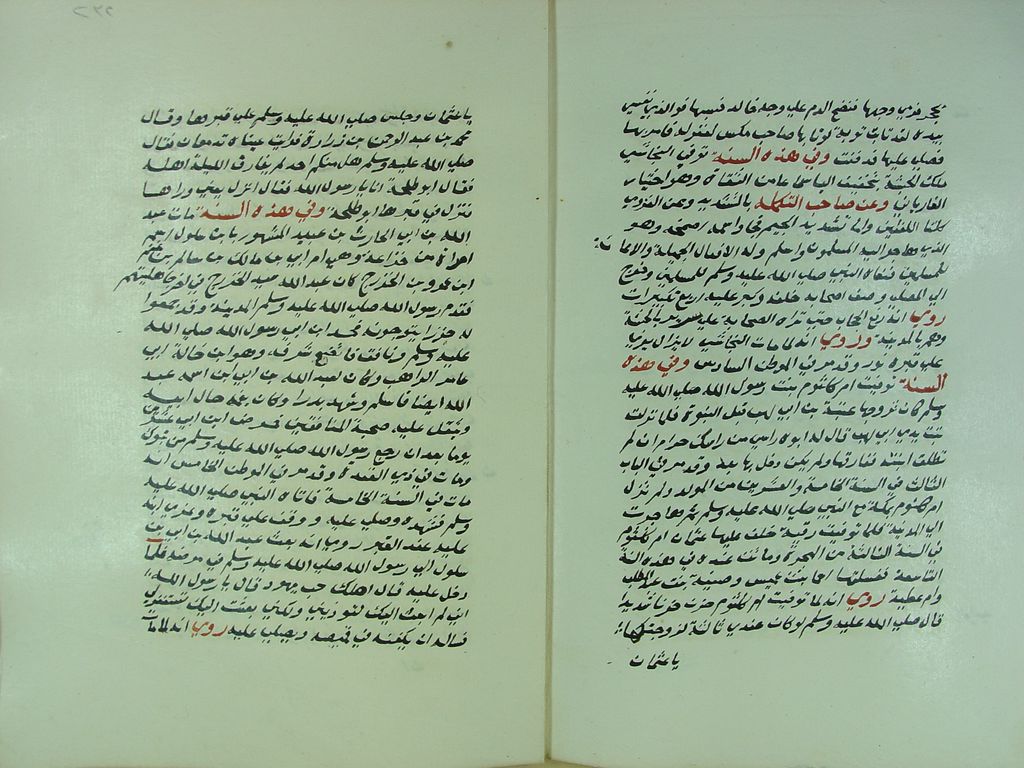 بحجر فرمى وجهها فنضح الدم على وجه خالد فسبها فوالذي نفسي
بيده لقد تابت توبة لو تابها صاحب مكس لغفر له فامر بها
فصلى عليها فدفنت وفي هذه السنة توفي النجاشي
ملك الحبشة بتخفيف الياء سماعا من الثقات وهو اختيار
الفارابي وعن صاحب التكملة بالتشديد وعن الغوري
كلتا اللغتين واما تشديد الجيم فخطأ واصحمة وهو
الذي هاجر اليه المسلمون واسلم وله الافعال الجميلة والاعانة
للمسلمين فنعاه النبي صلى الله عليه وسلم للمسلمين وخرج
الى المصلى وصف اصحابه خلفه وكبر عليه اربع تكبيرات
روي انه رفع الحجاب حتى تراه الصحابة على سريره بالحبشة
وهم بالمدينة وروي انه لما مات النجاشي لا يزال يرى
على قبره نور وقد مر في الموطن السادس وفي هذه
السنة توفيت ام كلثوم بنت رسول الله صلى الله عليه
وسلم كان تزوجها عتيبة بن ابي لهب قبل النبوة فلما نزلت
تبت يدى ابي لهب قال له ابوه راسي من راسك حرام ان لم
تطلق ابنته ففارقها ولم يكن دخل بها بعد وقد مر في الباب
الثالث في السنة الخامسة والعشرين من المولد ولم تزل
ام كلثوم بمكة مع النبي صلى الله عليه وسلم ثم هاجرت
الى المدينة فلما توفيت رقية خلف عليها عثمان ام كلثوم
في السنة الثالثة من الهجرة وماتت عنده في هذه السنة
التاسعة فغسلتها اسما بنت عميس وصفية بنت عبد المطلب
وام عطية روي انه لما توفيت ام كلثوم حزن حزنا شديدا
قال صلى الله عليه وسلم لو كانت عندي ثالثة لزوجتكها
يا عثمان
يا عثمان وجلس صلى الله عليه وسلم على قبرها وقال
محمد بن عبد الرحمن بن زرارة فرايت عيناه تدمعان فقال
صلى الله عليه وسلم هل منكم احد لم يقارف الليلة اهله
فقال ابو طلحة انا يا رسول الله فقال انزل يعني وراها
فنزل في قبرها ابو طلحة وفي هذه السنة مات عبد
الله بن ابي الحارث بن عبيد المشهور بابن سلول اسم
امراة من خزاعة وهي ام ابي بن مالك بن سالم بن غنم
ابن عمرو بن الخزرج كان عبد الله سيد الخزرج في اخر جاهليتهم
فقدم رسول الله صلى الله عليه وسلم المدينة وقد جمعوا
له خرزا يتوجونه فحسد ابن ابي رسول الله صلى الله
عليه وسلم ونافق فاتضع شرفه وهو ابن خالة ابي
عامر الراهب وكان لعبد الله بن ابي ابن اسمه عبد
الله ايضا فاسلم وشهد بدرا وكان يغمه حال ابيه
ويثقل عليه صحبة المنافقين فمرض ابن ابي عشرين
يوما بعد ان رجع رسول الله صلى الله عليه وسلم من تبوك
ومات في ذي القعدة وقد مر في الموطن الخامس انه
مات في السنة الخامسة فاتاه النبي صلى الله عليه
وسلم فشهده وصلى عليه ووقف على قبره وعزى ابنه
عليه عند القبر روي انه بعث عبد الله بن ابي بن
سلول الى رسول الله صلى الله عليه وسلم في مرضه فلما
دخل عليه قال اهلكك حب يهود قال يا رسول الله
اني لم ابعث اليك لتوذيني ولكني بعثت اليك تستغفر لي
فساله ان يكفنه في قميصه ويصلي عليه روي انه لما مات